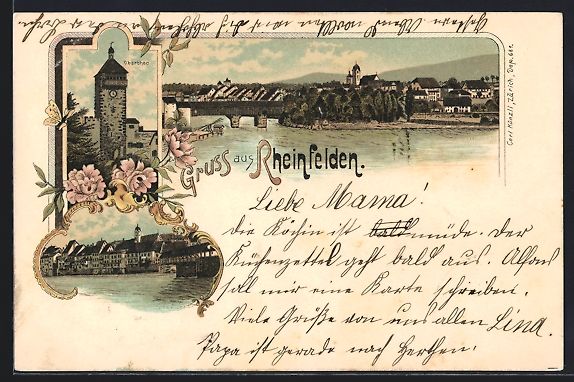 Oberthor
Gruss aus Rheinfelden.
Carl Künzli, Zürich, Dep. 661.
Liebe Mama!
die Köchin ist bald müde. der
Küchenzettel geht bald aus. Alfons
soll mir eine Karte schreiben.
Viele Grüße von uns allen Lina.
Papa ist gerade nach